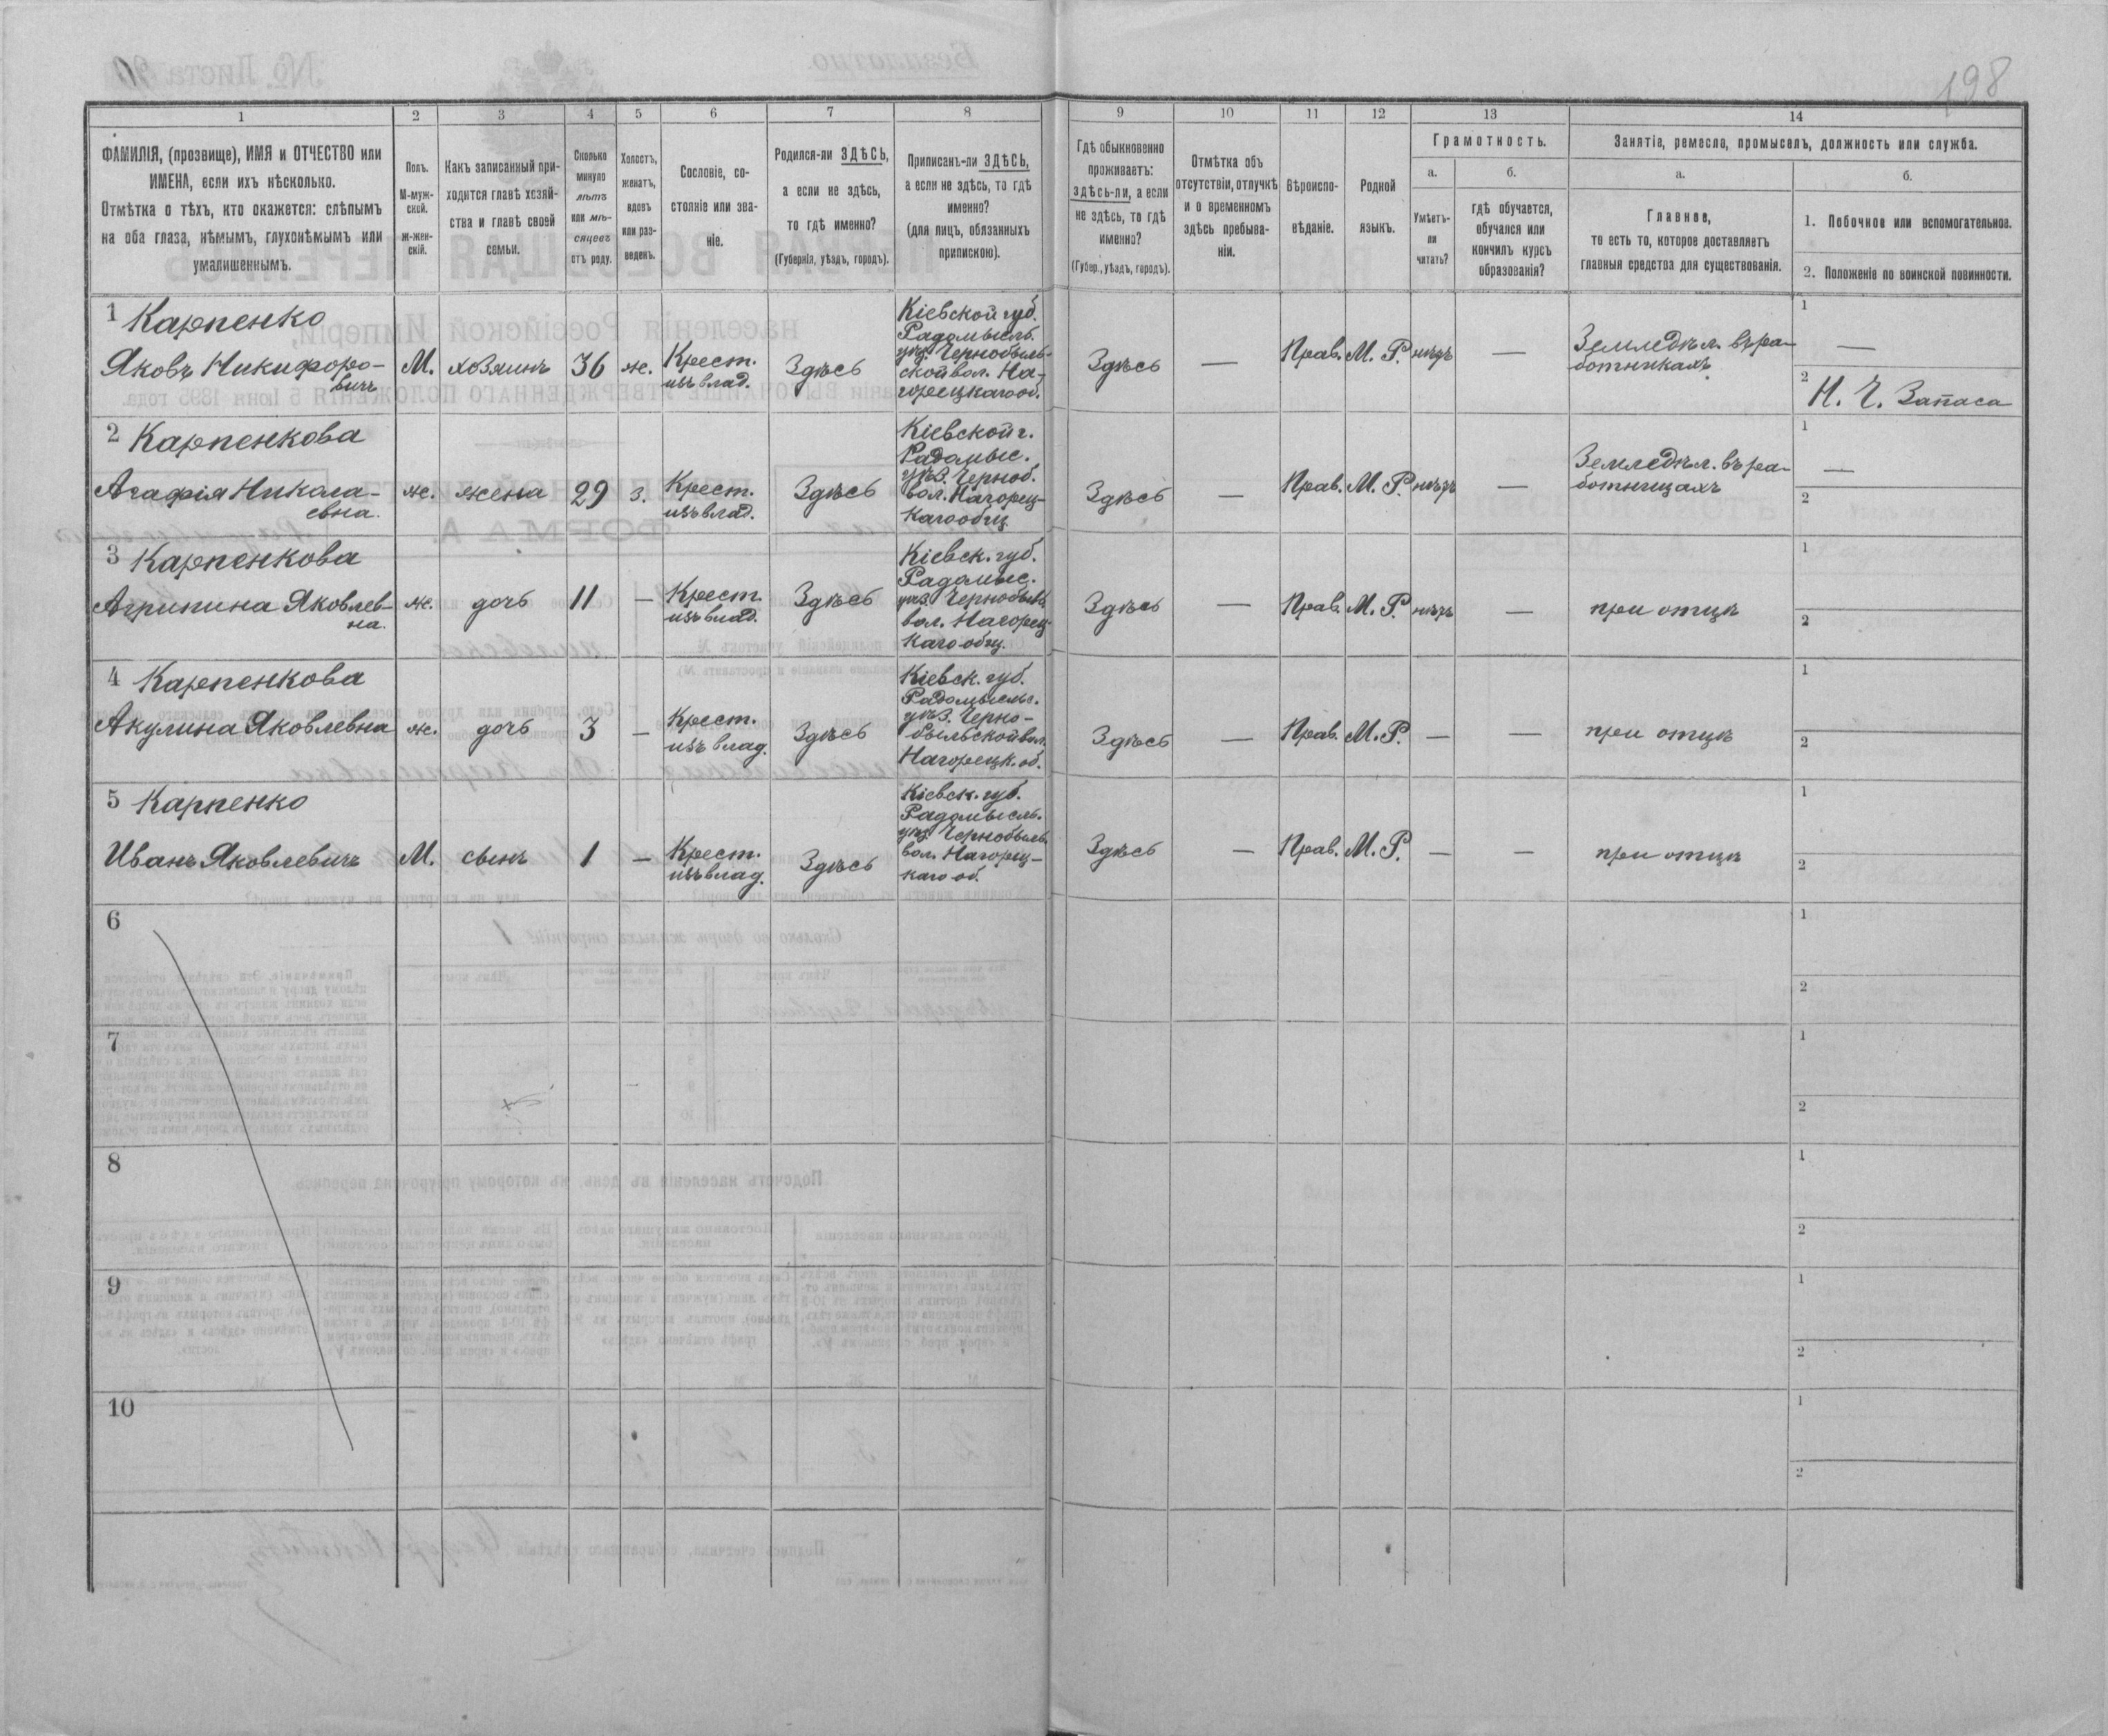 198
1
2
3
4
5
6
7
8
9
10
11
12
13
14
ФАМИЛІЯ, (прозвище), ИМЯ и ОТЧЕСТВО или
ИМЕНА, если ихъ нѣсколько.
Отмѣтка о тѣхъ, кто окажется: слѣпымъ
на оба глаза, нѣмымъ, глухонѣмымъ или
умалишеннымъ.
Полъ.
М-муж-
ской.
Ж-жен-
скій.
Какъ записанный при-
ходится главѣ хозяй-
ства и главѣ своей
семьи.
Сколько
минуло
лѣтъ
или мѣ-
сяцевъ
отъ роду.
Холостъ,
женатъ,
вдовъ
или раз-
веденъ.
Сословіе, со-
стояніе или зва-
ніе.
Родился-ли ЗДѢСЬ,
а если не здѣсь,
то гдѣ именно?
(Губернія, уѣздъ, городъ).
Приписанъ-ли ЗДѢСЬ,
а если не здѣсь, то гдѣ
именно?
(для лицъ, обязанныхъ
припискою).
Гдѣ обыкновенно
проживаетъ:
здѣсь-ли, а если
не здѣсь, то гдѣ
именно?
(Губер., уѣздъ, городъ).
Отмѣтка объ
отсутствіи, отлучкѣ
и о временномъ
здѣсь пребыва-
ніи.
Вѣроиспо-
вѣданіе.
Родной
языкъ.
Грамотность.
а.
Умѣетъ-
ли
читать?
б.
гдѣ обучается,
обучался или
кончилъ курсъ
образованія?
Занятіе, ремесло, промыселъ, должность или служба.
а.
Главное,
то есть то, которое доставляетъ
главныя средства для существованія.
б.
1. Побочное или вспомогательное.
2. Положеніе по воинской повинности.
1 Карпенко
Яковъ Никифоро-
вичъ
М.
хозяинъ
36
ж.
Крест.
изъ влад.
Здѣсь
Кіевской губ.
Радомысль.
уѣз. Чернобыль-
ской вол. На-
горецкаго об.
Здѣсь
—
Прав.
М. Р.
нѣтъ
—
Земледѣл. въ ра-
ботникахъ
1
—
2
Н. Ч. Запаса
2 Карпенкова
Агафія Никола-
евна.
ж.
жена
29
з.
Крест.
изъ влад.
Здѣсь
Кіевской г.
Радомыс.
уѣз. Черноб.
вол. Нагорец-
каго общ
Здѣсь
—
Прав.
М. Р.
нѣтъ
—
Земледѣл. въ ра-
ботницахъ
1
—
2
3 Карпенкова
Агрипина Яковлев-
на.
ж.
дочь
11
—
Крест.
изъ влад.
Здѣсь
Кіевск. губ.
Радомыс.
уѣз. Чернобыль
вол. Нагорец-
каго общ.
Здѣсь
—
Прав.
М. Р.
нѣтъ
—
при отцѣ
1
2
4 Карпенкова
Акулина Яковлевна
ж.
дочь
3
—
Крест.
изъ влад.
Здѣсь
Кіевск. губ.
Радомысль.
уѣз. Черно-
быльской вол.
Нагорецк. об.
Здѣсь
—
Прав.
М. Р.
—
—
при отцѣ
1
2
5 Карпенко
Иванъ Яковлевичъ
М.
сынъ
1
—
Крест.
изъ влад.
Здѣсь
Кіевск. губ.
Радомысль.
уѣз. Чернобыль.
вол. Нагорец-
каго об.
Здѣсь
—
Прав.
М. Р.
—
—
при отцѣ
1
2
6
1
2
7
1
2
8
1
2
9
1
2
10
1
2